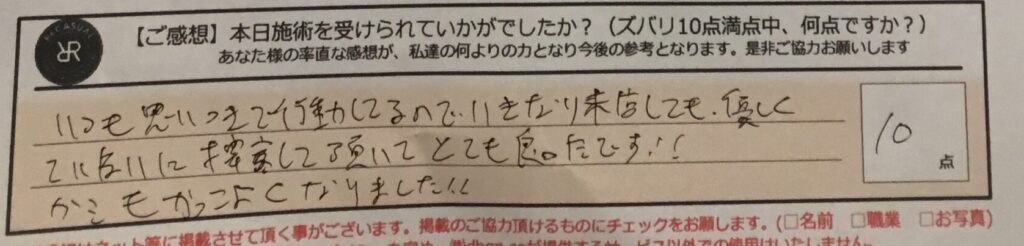 【ご感想】本日施術を受けられていかがでしたか？（ズバリ10点満点中、何点ですか？）
あなた様の率直な感想が、私達の何よりの力となり今後の参考となります。是非ご協力お願いします
いつも思いつきで行動してるので、いきなり来店しても、優しく
ていねいに接客して頂いてとても良かったです!!
かみもかっこよくなりました!!
10
点
ネット等に掲載させて頂く事がございます。掲載のご協力頂けるものにチェックをお願します。(□名前 □職業 □お写真)
が提供するサービス以外での使用はいたしません。